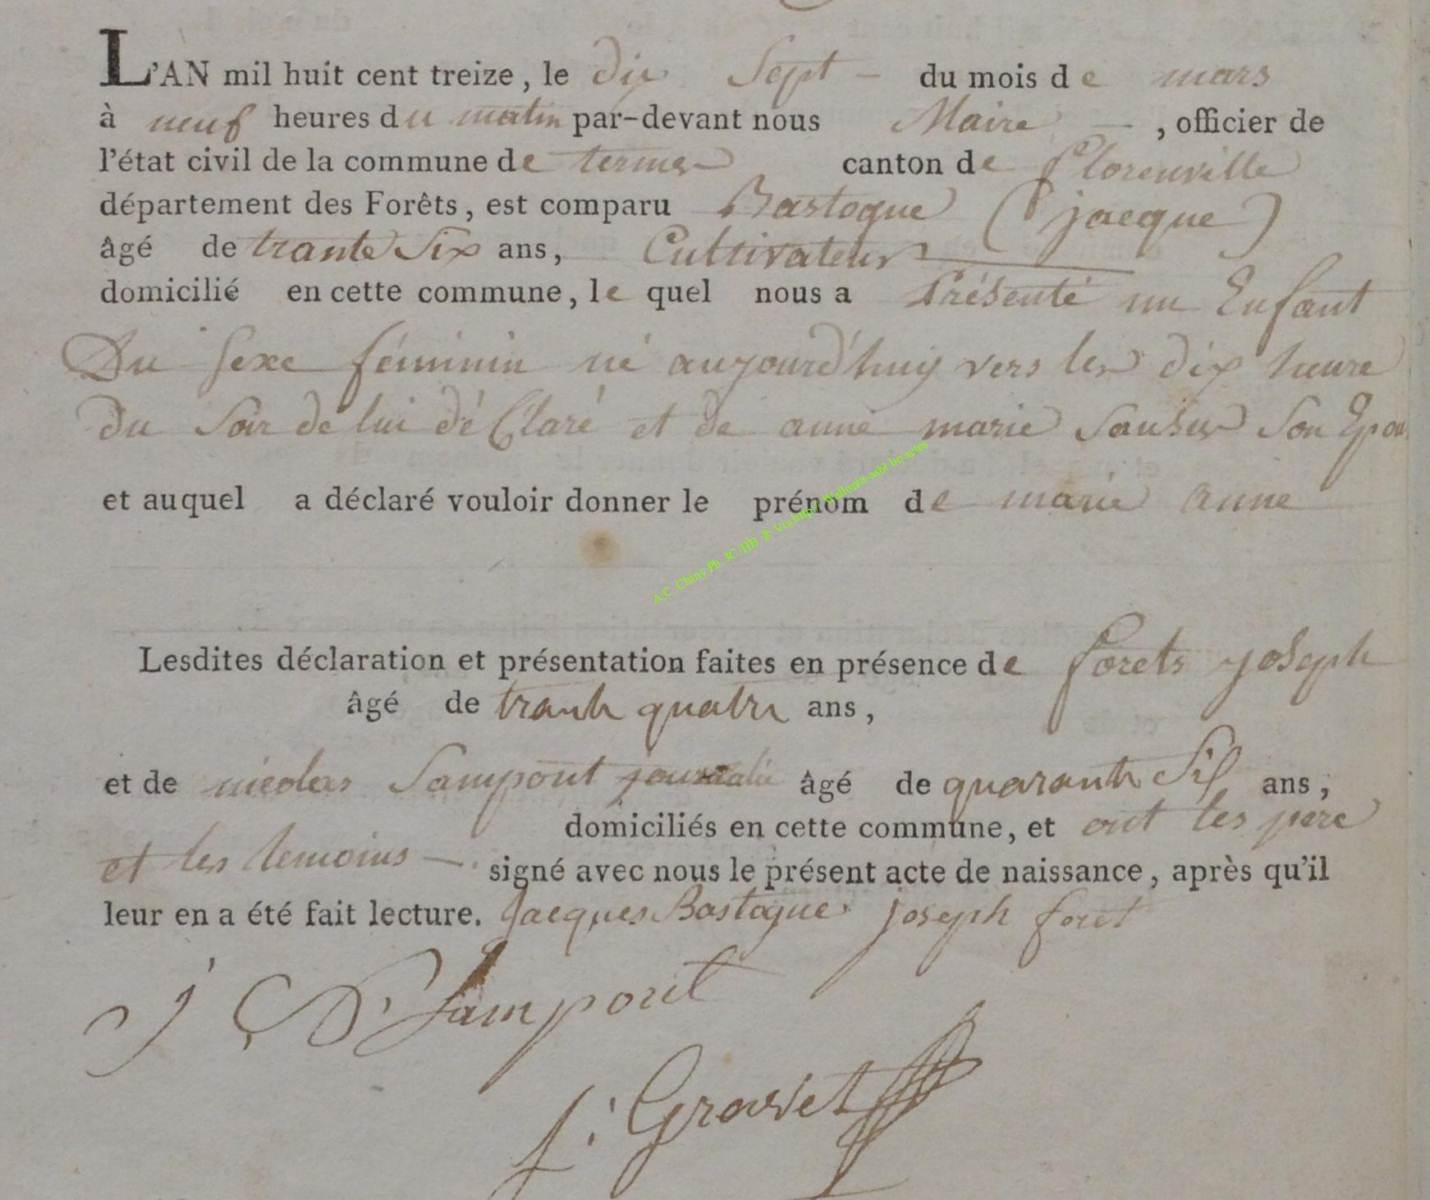 L'AN mil huit cent treize, le dix Sept - du mois de mars
à neuf heures du matin par-devant nous Maire -, officier de
l'état civil de la commune de termes canton de florenville
département des Forêts, est comparu Bastogne (jacque)
âgé de trante Six ans, Cultivateur
domicilié en cette commune, le quel nous a Présenté un Enfant
Du sexe féminin né aujourd'huy vers les dix heure
du Soir de lui dé Claré et de anne marie Son Epou
et auquel a déclaré vouloir donner le prénom de marie anne
Lesdites déclaration et présentation faites en présence de forets joseph
âgé de trante quatre ans,
et de nicolas Lampont âgé de quarante Six ans,
domiciliés en cette commune, et ont les pere
et les temoins - signé avec nous le présent acte de naissance, après qu'il
leur en a été fait lecture. Jacques Bastogne joseph foret
Lampont
Graviet